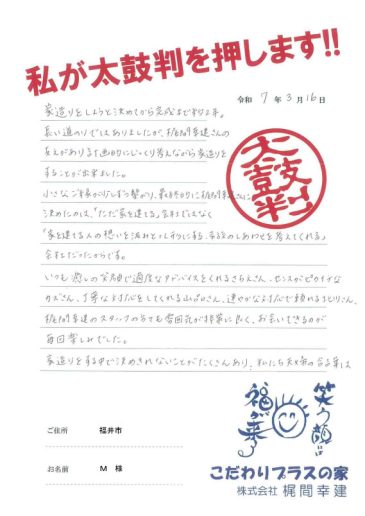 私が太鼓判を押します!!
令和 7 年 3 月 16 日
太鼓判!!
家造りをしようと決めてから完成まで約2年。
長い道のりではありましたが、梶間幸建さんの
支えがあり計画的にじっくり考えながら家造りを
することが出来ました。
小さなご縁から繋がり、最終的に梶間幸建さんに
決めたのは、「ただ家を建てる」会社ではなく
「家を建てる人の想いを汲みとり 家族のしあわせを考えてくれる」
会社だったからです。
いつも癒しの笑顔で適度なアドバイスをくれるさらえさん、センスがピカイチな
カズさん、丁寧な対応をしてくれる山品さん、速やかな対応で頼れるさとりさん、
梶間幸建のスタッフの方々も雰囲気が非常に良く、お会いできるのが
毎回楽しみでした。
家造りをする中で決めきれないことがたくさんあり、私たち夫婦の合言葉は
笑う顔には
福が来る
ご住所 福井市
お名前 M 様
こだわりプラスの家
株式会社 梶間幸建